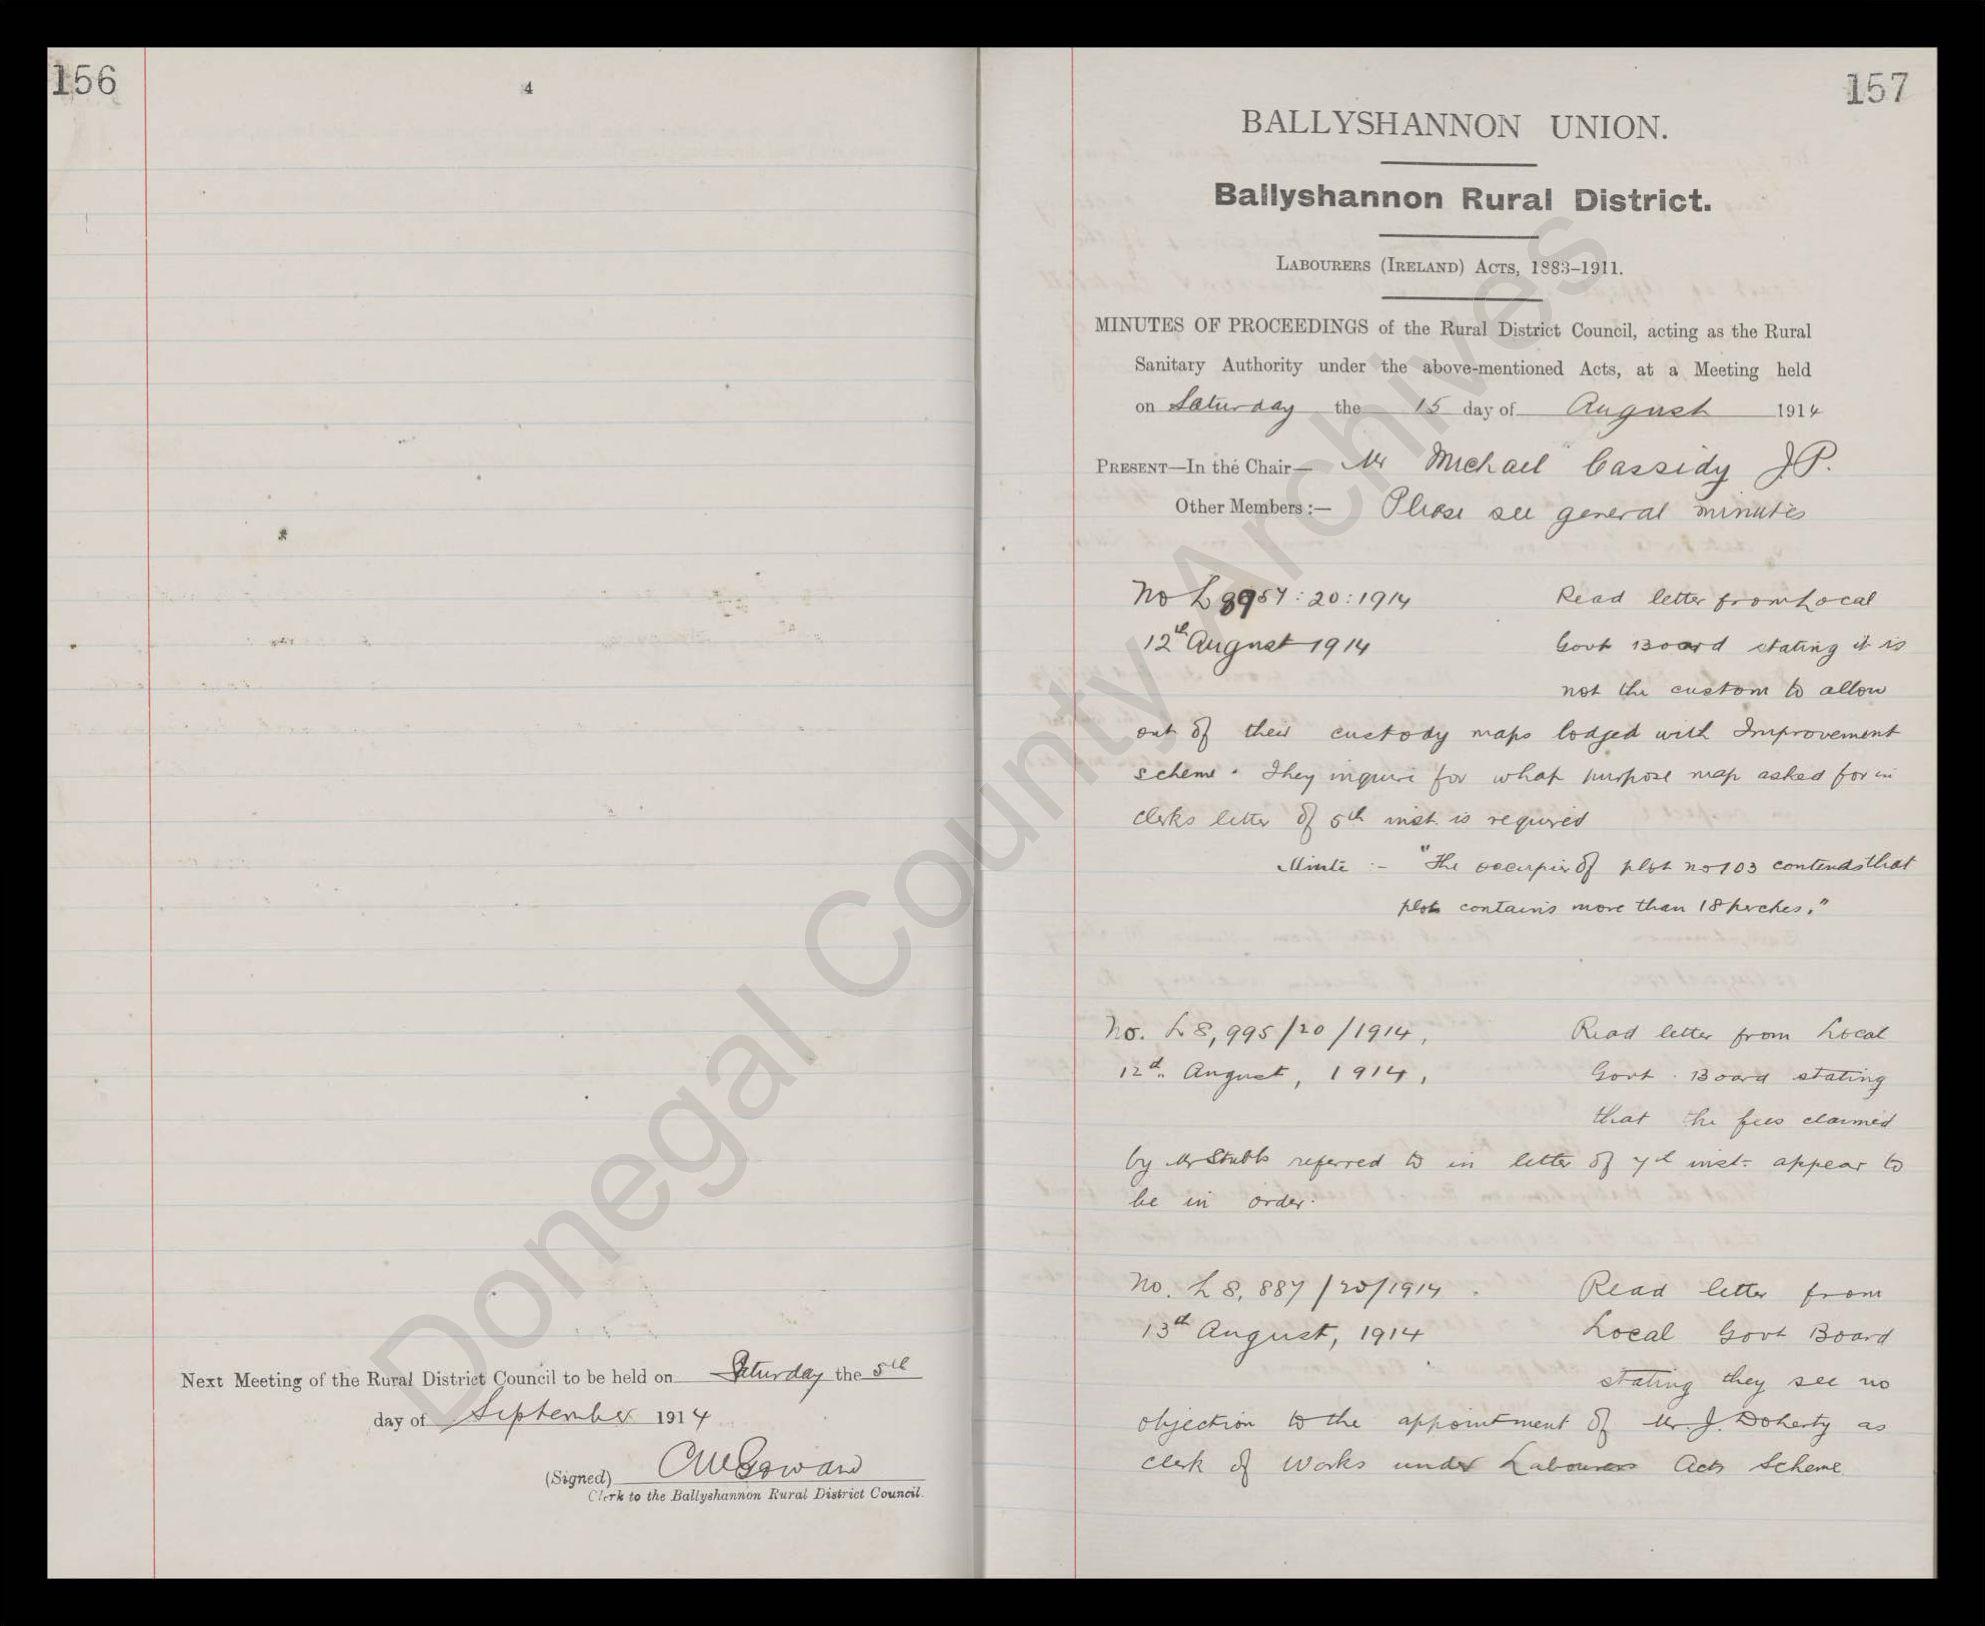 156
4
Next Meeting of the Rural District Council to be held on Saturday the 5th
day of September 1914
(Signed)
Clerk to the Ballyshannon Rural District Council.
157
BALLYSHANNON UNION.
Ballyshannon Rural District.
LABOURERS (IRELAND) ACTS, 1883–1911.
MINUTES OF PROCEEDINGS of the Rural District Council, acting as the Rural
Sanitary Authority under the above-mentioned Acts, at a Meeting held
on Saturday the 15 day of August 1914
PRESENT—In the Chair— Mr Michael Cassidy J.P.
Other Members :— Please see general minutes
No L 8957 : 20 : 1914 Read letter from Local
12th August 1914 Govt Board stating it is
not the custom to allow
out of their custody maps lodged with Improvement
scheme. They inquire for what purpose map asked for in
clerks letter of 5th inst. is required
Minute :- "The occupier of plot no 103 contends that
plot contains more than 18 perches."
No. L 8,995/20/1914, Read letter from Local
12th. August, 1914, Govt. Board stating
that the fees claimed
by Mr Stubbs referred to in letter of 7th inst. appear to
be in order.
No. L 8,887/20/1914. Read letter from
13th August, 1914 Local Govt Board
stating they see no
objection to the appointment of Mr. J. Doherty as
Clerk of Works under Labourers Acts Scheme
Donegal County Archives